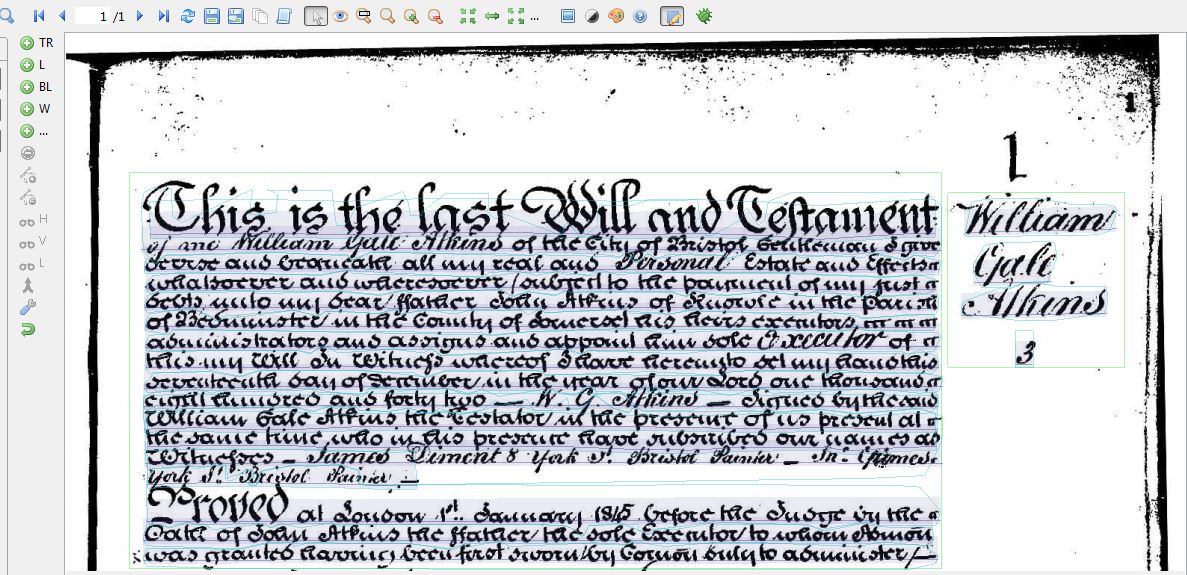 1 /1
TR
L
BL
W
...
H
V
L
1
1
This is the last Will and Testament
of me William Gale Atkins of the City of Bristol Gentleman I give
devise and bequeath all my real and Personal Estate and Effects
whatsoever and wheresoever subject to the payment of my just
debts unto my dear ffather John Atkins of Knowle in the Parish
of Bedminster in the County of Somerset his heirs executors
administrators and assigns and appoint him sole Executor of
this my Will In Witness whereof I have hereunto set my hand this
seventeenth day of December in the year of our Lord one thousand
eight hundred and forty two — W. G. Atkins — Signed by the said
William Gale Atkins the Testator in the presence of us present at
the same time who in his presence have subscribed our names as
Witnesses — James Diment 8 York St. Bristol Painter — Jno. James
York St. Bristol Painter —
Proved at London 1st. January 1845 before the Judge by the
Oath of John Atkins the ffather the sole Executor to whom Admon
was granted having been first sworn by Common duly to administer
William
Gale
Atkins
3